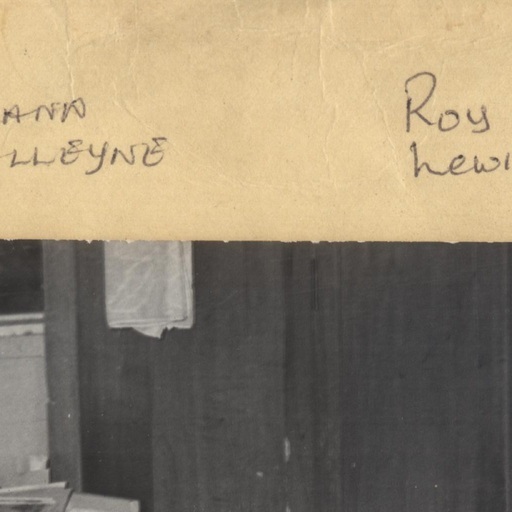 ANN
LLEYNE
Roy
Lewi